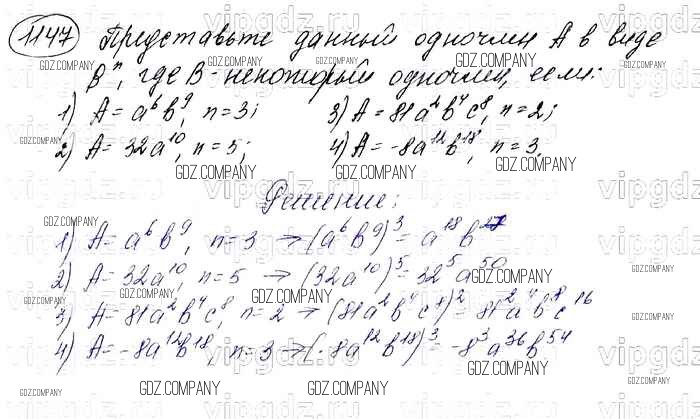 1147 Представьте данный одночлен A в виде
Bⁿ, где B - некоторый одночлен, если:
1) A = a⁶b⁹, n = 3; 3) A = 81a²b⁴c⁸, n = 2;
2) A = 32a¹⁰, n = 5; 4) A = -8a¹²b¹⁸, n = 3.
Решение:
1) A = a⁶b⁹, n = 3 → (a⁶b⁹)³ = a¹⁸b²⁷
2) A = 32a¹⁰, n = 5 → (32a¹⁰)⁵ = 32⁵a⁵⁰
3) A = 81a²b⁴c⁸, n = 2 → (81a²b⁴c⁸)² = 81²a⁴b⁸c¹⁶
4) A = -8a¹²b¹⁸, n = 3 → (-8a¹²b¹⁸)³ = -8³a³⁶b⁵⁴
GDZ.COMPANY
vipgdz.ru